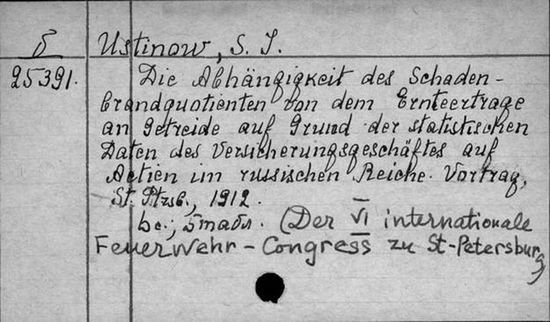 б Ustinow, S. I.
25391. Die Abhängigkeit des Schaden-
brandquotienten von dem Ernteertrage
an Getreide auf Grund der statistischen
Daten des Versicherungsgeschäftes auf
Actien im russischen Reiche. Vortrag,
St. Ptrsb., 1912.
(Der VI internationale
Feuerwehr-Congress zu St-Petersburg)